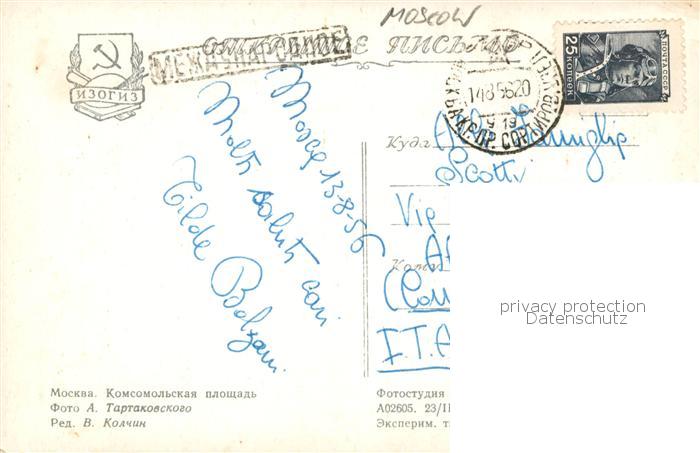 MOSCOW
ОТКРЫТОЕ ПИСЬМО
МЕЖДУНАРОДНОЕ
ИЗОГИЗ
25
КОПЕЕК
ПОЧТА СССР
14 8 56 20
Mosca 13-8-56
Molti saluti cari
Tilde Bolzani
Куда
Scotti
Via
Кому
I.T.A
privacy protection
Datenschutz
Москва. Комсомольская площадь
Фото А. Тартаковского
Ред. В. Колчин
Фотостудия
А02605. 23/II
Эксперим. т